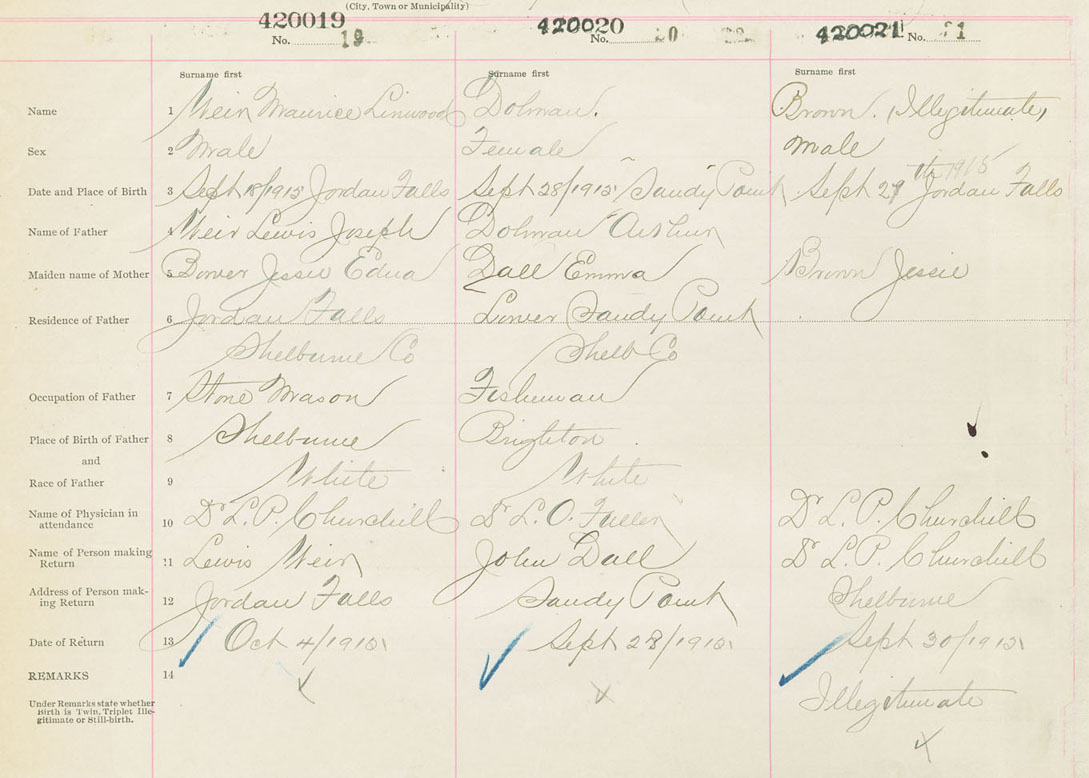 (City, Town or Municipality)
420019 420020 420021
No. 19 No. 20 22 No. 21
Surname first Surname first Surname first
Name 1 Weir Maurice Linwood Dolman. Brown. (Illegitimate)
Sex 2 Male Female Male
Date and Place of Birth 3 Sept 18/1915 Jordan Falls Sept 28/1915 Sandy Point Sept 29th 1915 Jordan Falls
Name of Father 4 Weir Lewis Joseph Dolman Arthur
Maiden name of Mother 5 Bower Jessie Edna Dall Emma Brown Jessie
Residence of Father 6 Jordan Falls Lower Sandy Point
Shelburne Co Shelb Co
Occupation of Father 7 Stone Mason Fisherman
Place of Birth of Father 8 Shelburne Brighton
and
Race of Father 9 White White
Name of Physician in attendance 10 Dr L. P. Churchill Dr L. O. Fuller Dr L. P. Churchill
Name of Person making Return 11 Lewis Weir John Dall Dr L. P. Churchill
Address of Person making Return 12 Jordan Falls Sandy Point Shelburne
Date of Return 13 Oct 4/1915 Sept 28/1915 Sept 30/1915
REMARKS 14
Illegitimate
Under Remarks state whether
Birth is Twin, Triplet Ille-
gitimate or Still-birth.
x x x